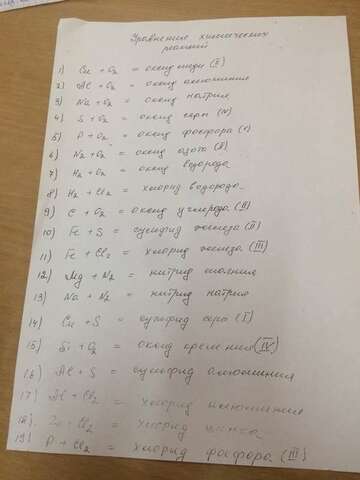 Уравнение химических
реакций
1) Cu + O₂ = оксид меди (II)
2) Al + O₂ = оксид алюминия
3) Na + O₂ = оксид натрия
4) S + O₂ = оксид серы (IV)
5) P + O₂ = оксид фосфора (V)
6) N₂ + O₂ = оксид азота (II)
7) H₂ + O₂ = оксид водорода
8) H₂ + Cl₂ = хлорид водорода
9) C + O₂ = оксид углерода (II)
10) Fe + S = сульфид железа (II)
11) Fe + Cl₂ = хлорид железа (III)
12) Mg + N₂ = нитрид магния
13) Na + N₂ = нитрид натрия
14) Cu + S = сульфид серы (I)
15) Si + O₂ = оксид кремния (IV)
16) Al + S = сульфид алюминия
17) Al + Cl₂ = хлорид алюминия
18) Zn + Cl₂ = хлорид цинка
19) P + Cl₂ = хлорид фосфора (III)